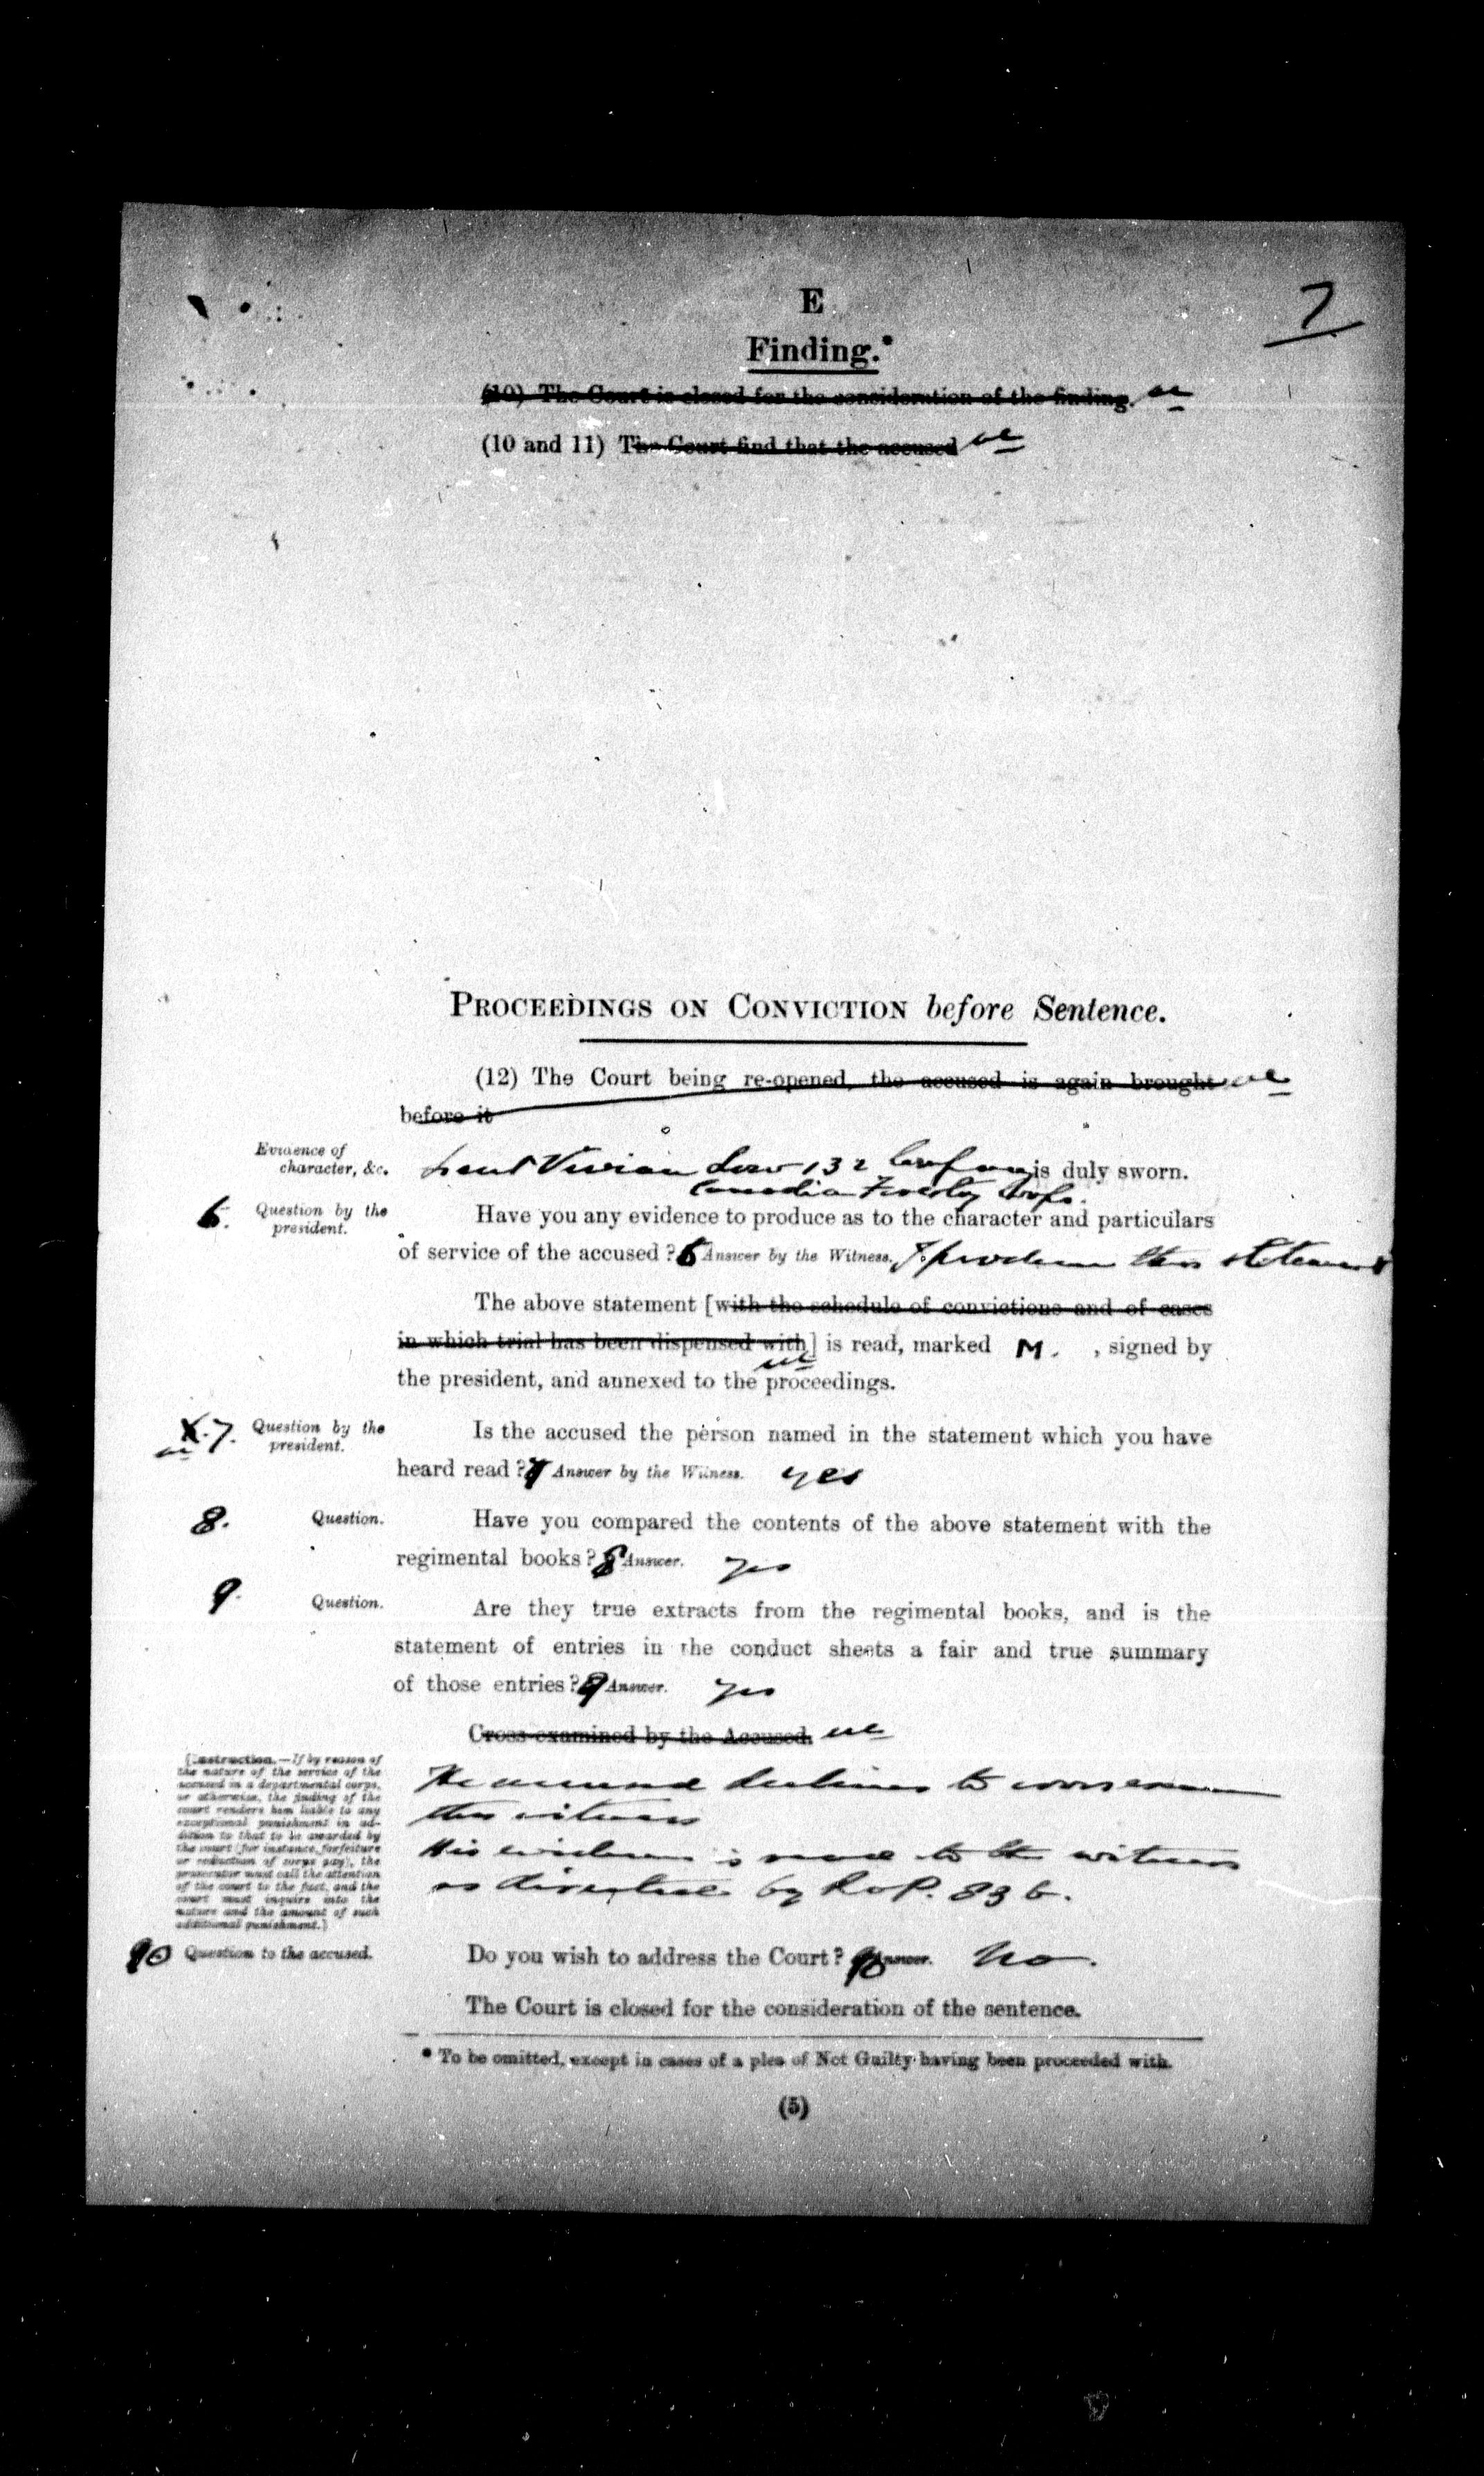 7
E
Finding.*
(10) The Court is closed for the consideration of the finding.
(10 and 11) The Court find that the accused
PROCEEDINGS ON CONVICTION before Sentence.
(12) The Court being re-opened, the accused is again brought
before it
Evidence of
character, &c.
Lieut Vivian Low 132 Company is duly sworn.
Canadian Forestry Corps.
6. Question by the
president.
Have you any evidence to produce as to the character and particulars
of service of the accused? 6 Answer by the Witness. I produce this statement
The above statement [with the schedule of convictions and of cases
in which trial has been dispensed with] is read, marked M. , signed by
the president, and annexed to the proceedings.
7. Question by the
president.
Is the accused the person named in the statement which you have
heard read? 7 Answer by the Witness. yes
8. Question.
Have you compared the contents of the above statement with the
regimental books? 8 Answer. yes
9. Question.
Are they true extracts from the regimental books, and is the
statement of entries in the conduct sheets a fair and true summary
of those entries? 9 Answer. yes
Cross-examined by the Accused.
[Instruction.—If by reason of
the nature of the service of the
accused in a departmental corps,
or otherwise, the finding of the
court renders him liable to any
exceptional punishment in ad-
dition to that to be awarded by
the court (for instance, forfeiture
or reduction of corps pay), the
prosecutor must call the attention
of the court to the fact, and the
court must inquire into the
nature and the amount of such
additional punishment.]
The accused declines to cross examine
this witness
His evidence is read to the witness
as directed by R of P. 83 b.
10 Question to the accused.
Do you wish to address the Court? 10 Answer. No.
The Court is closed for the consideration of the sentence.
* To be omitted, except in cases of a plea of Not Guilty having been proceeded with.
(5)